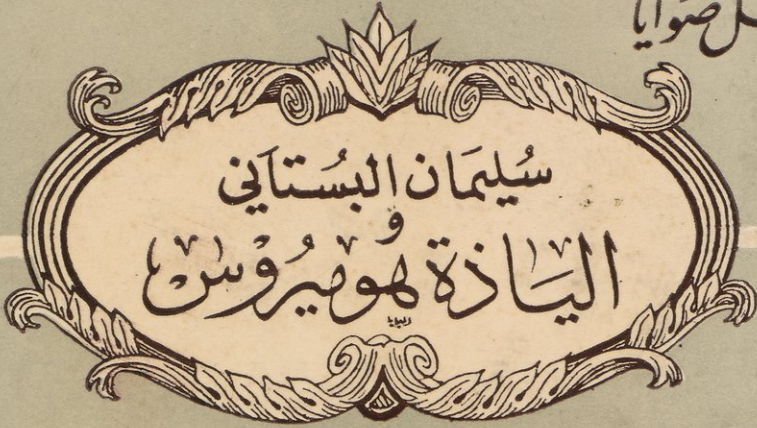 صوايا
سُليمَان البُستَاني
و
اليَاذة هوميرُوس